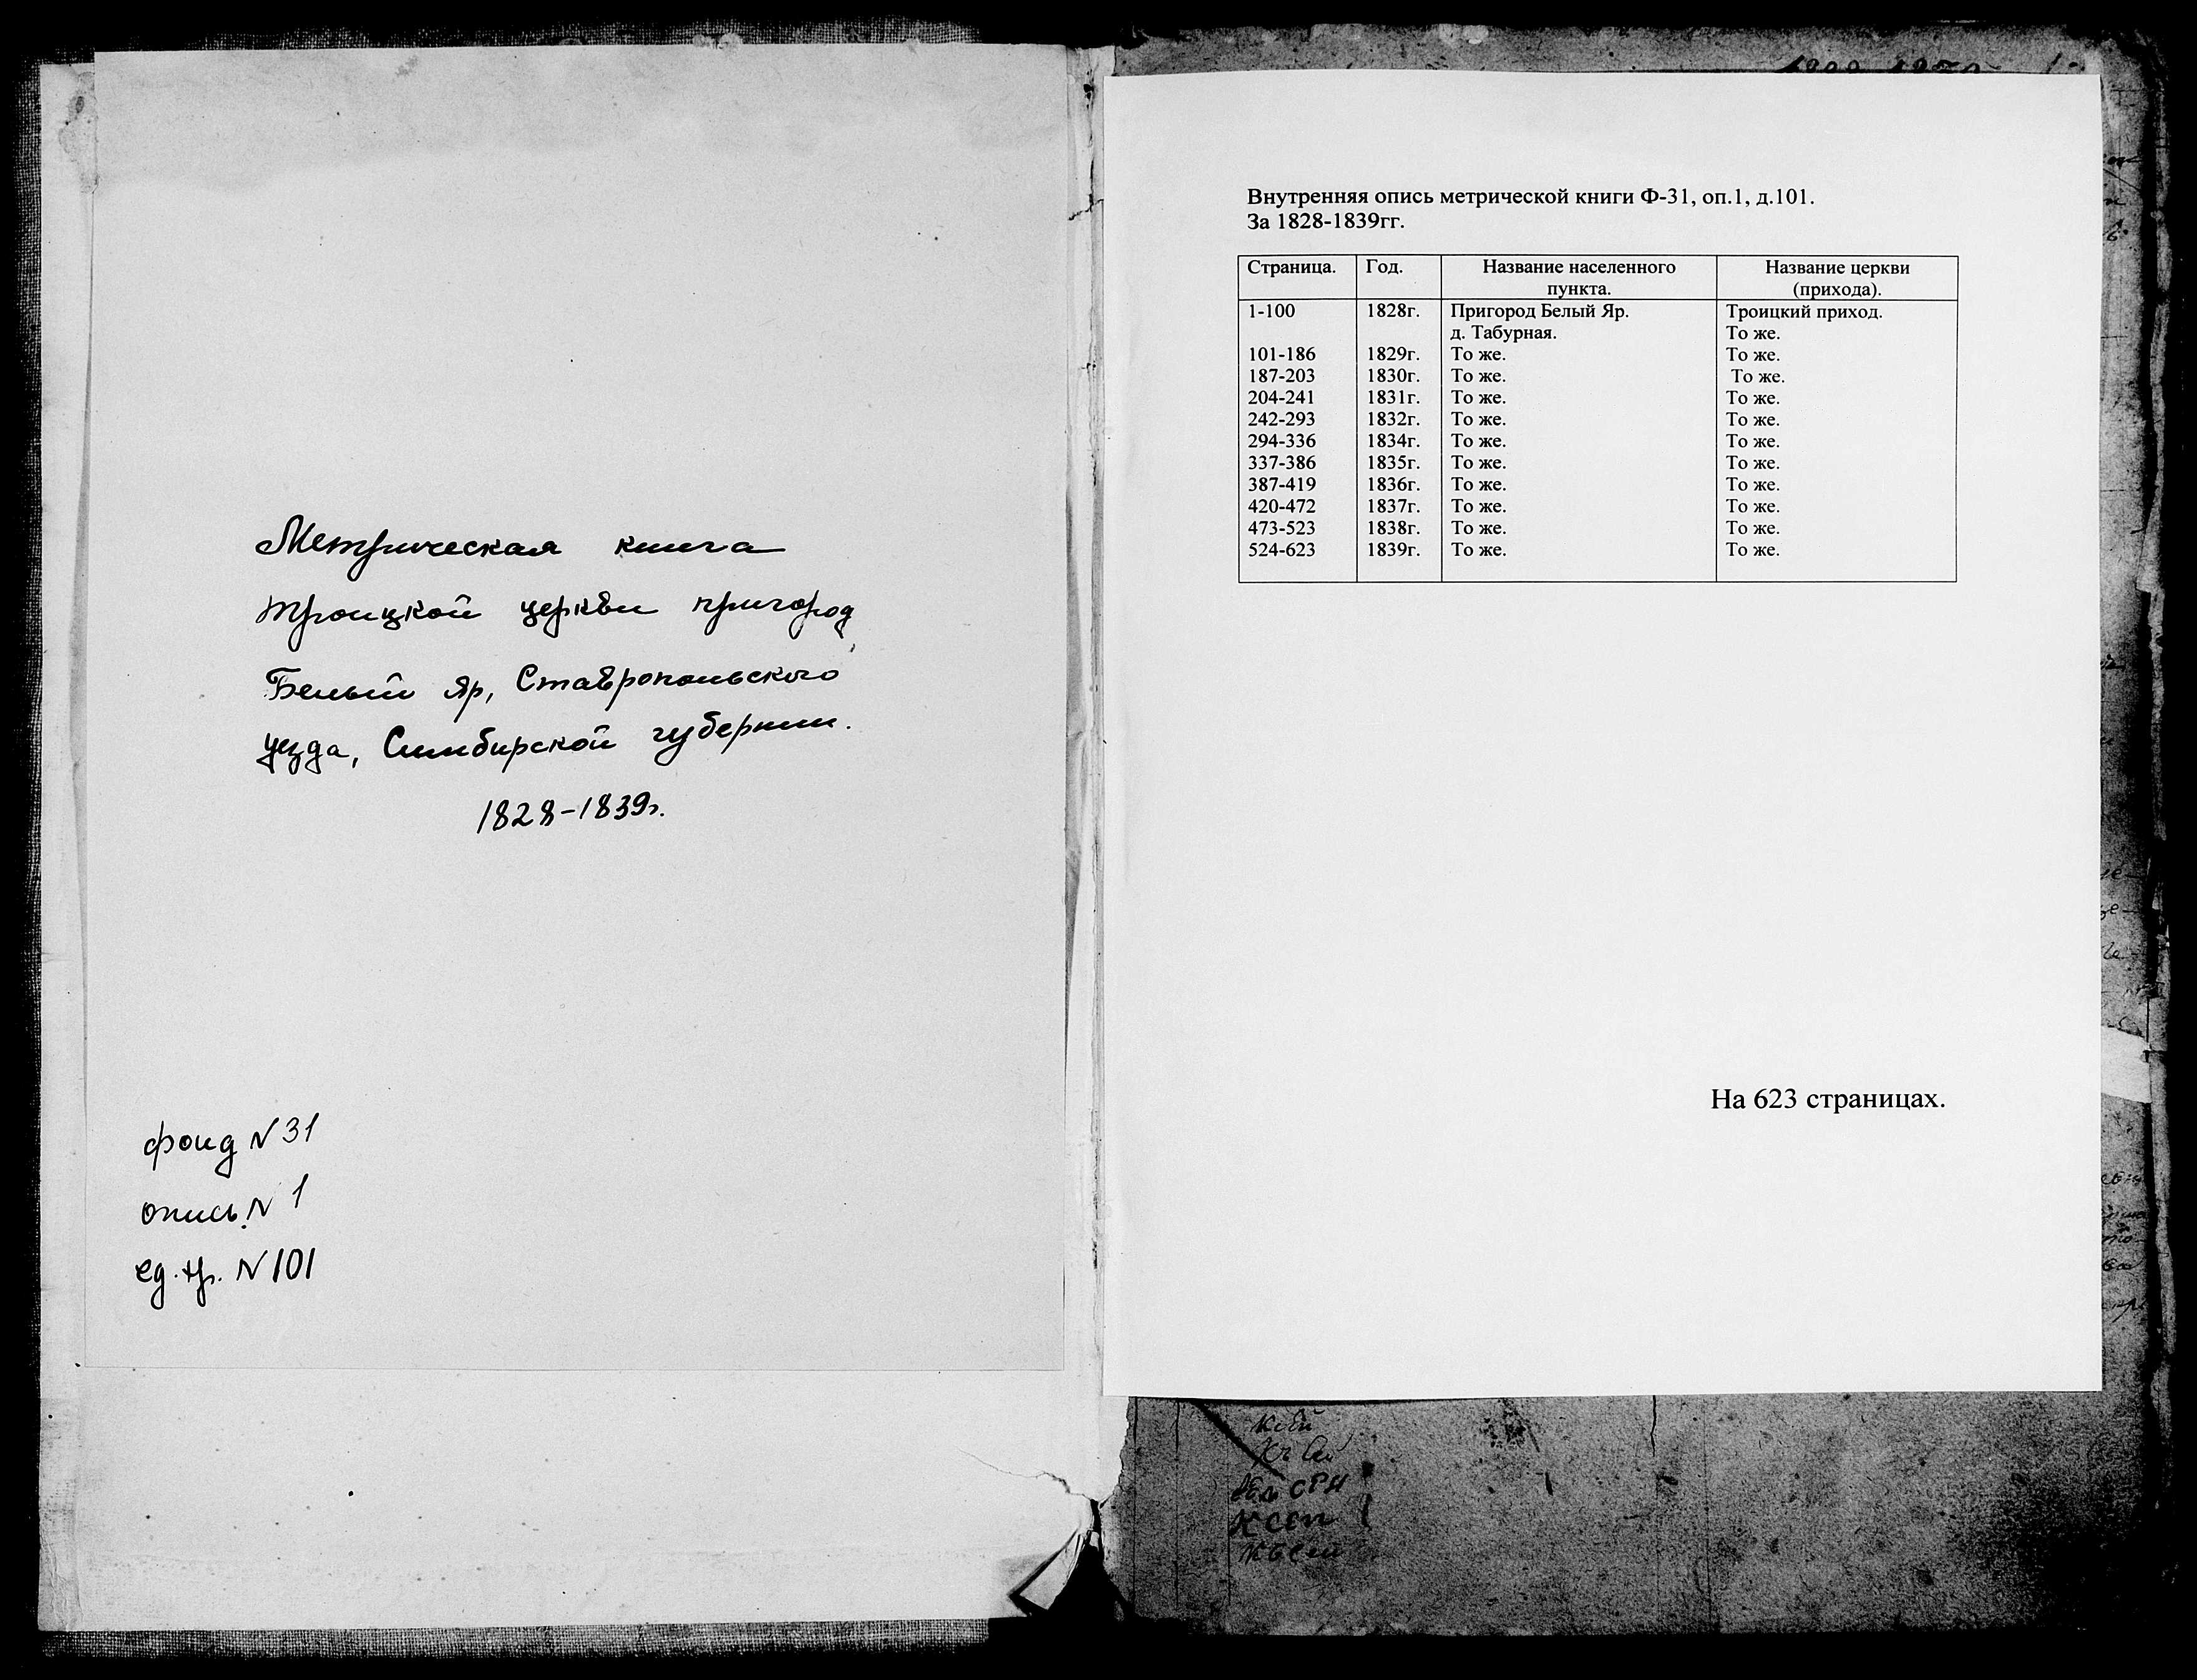 Метрическая книга
Троицкой церкви пригород
Белый Яр, Ставропольского
уезда, Симбирской губернии.
1828-1839г.
фонд N 31
опись N 1
ед. хр. N 101
Внутренняя опись метрической книги Ф-31, оп.1, д.101.
За 1828-1839гг.
Страница. Год. Название населенного пункта. Название церкви (прихода).
1-100 1828г. Пригород Белый Яр. Троицкий приход.
д. Табурная. То же.
101-186 1829г. То же. То же.
187-203 1830г. То же. То же.
204-241 1831г. То же. То же.
242-293 1832г. То же. То же.
294-336 1834г. То же. То же.
337-386 1835г. То же. То же.
387-419 1836г. То же. То же.
420-472 1837г. То же. То же.
473-523 1838г. То же. То же.
524-623 1839г. То же. То же.
На 623 страницах.